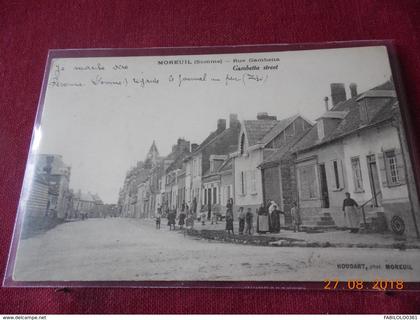 MOREUIL (Somme) — Rue Gambetta
Gambetta street
Je marche vers
Péronne (Somme) regarde le journal un peu
HOUDART, phot. MOREUIL
27 08 2018